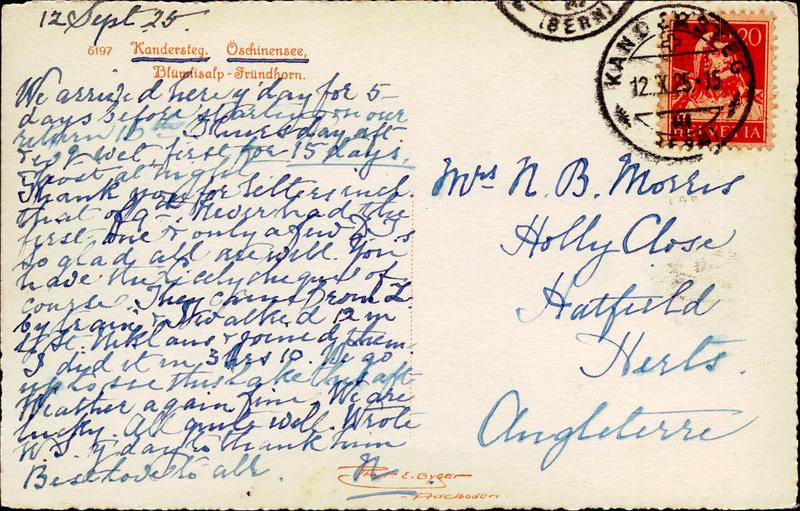 12 Sept 25.
6197 Kandersteg. Öschinensee,
Blümlisalp-Fründhorn.
We arrived here y'day for 5
days before starting on our
return 10th Thursday aft-
wet first for 15 days,
frost at night.
Thank you for letters incl
that of 9th. Never had the
first one & only a few
so glad all are well. You
have the
course They came from Z
by train & I walked 12 m
to St. Niklaus & joined them.
I did it in 3 hrs 10. We go
up to see this lake this aft
Weather again fine. We are
lucky. All quite well. Wrote
W.J. y'day to thank him
Best love to all. N.
(BERN)
KANDERSTEG
12.X.25-15
20
HELVETIA
Mrs N. B. Morris
Holly Close
Hatfield
Herts.
Angleterre
Phot. E. Gyger
- Adelboden.